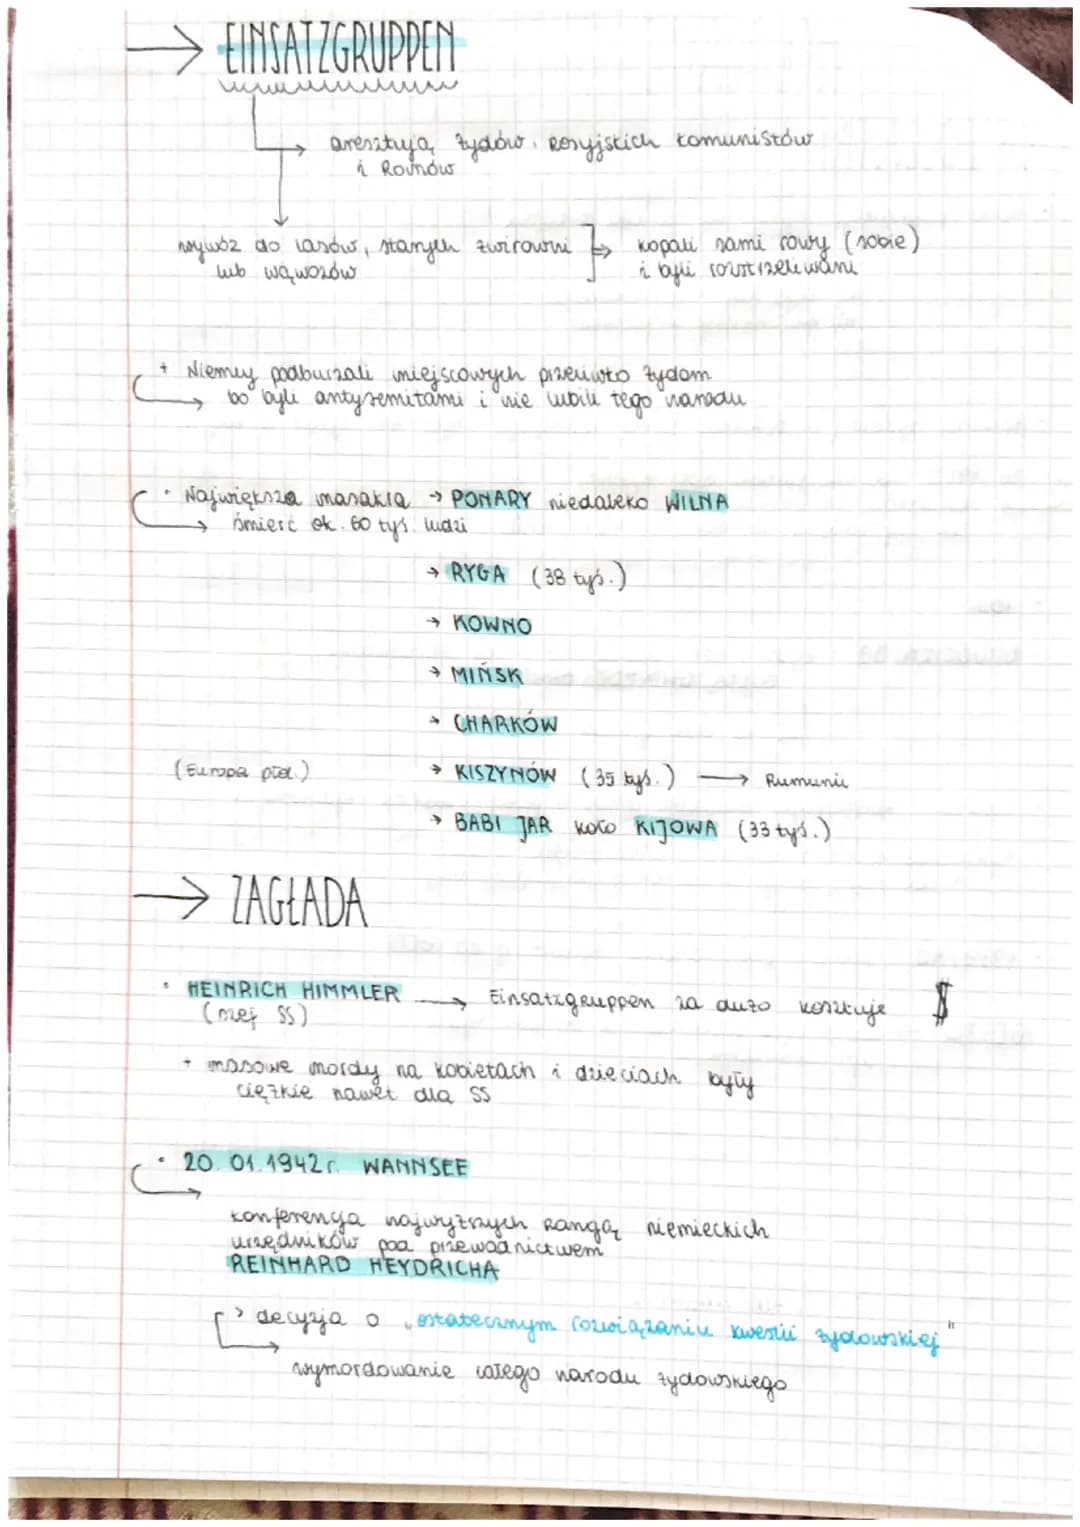 → EINSATZGRUPPEN
→ aresztują żydów, rosyjskich komunistów
i Romów
wywóz do lasów, starych żwirowni → kopali sami rowy (sobie)
lub wąwozów i byli rozstrzeliwani
+ Niemcy podburzali miejscowych przeciwko żydom
→ bo byli antysemitami i nie lubili tego narodu
• Największa masakra → PONARY niedaleko WILNA
→ śmierć ok. 60 tyś. ludzi
→ RYGA (38 tyś.)
→ KOWNO
→ MIŃSK
→ CHARKÓW
(Europa płd.) → KISZYNÓW (35 tyś.) → Rumunii
→ BABI JAR koło KIJOWA (33 tyś.)
→ ZAGŁADA
• HEINRICH HIMMLER → Einsatzgruppen za dużo kosztuje $
(szef SS)
+ masowe mordy na kobietach i dzieciach były
ciężkie nawet dla SS
• 20.01.1942r. WANNSEE
→ konferencja najwyższych rangą niemieckich
urzędników pod przewodnictwem
REINHARD HEYDRICHA
> decyzja o „ostatecznym rozwiązaniu kwestii żydowskiej"
→ wymordowanie całego narodu żydowskiego